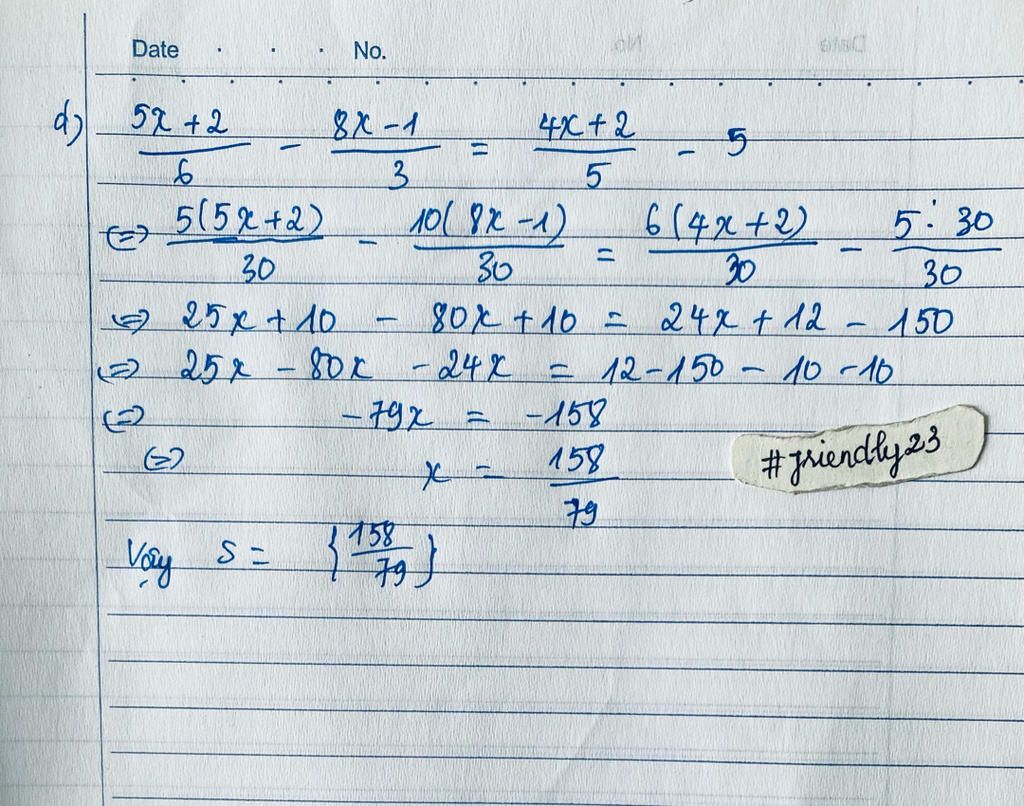 Date . . . No.
d) (5x+2)/6 - (8x-1)/3 = (4x+2)/5 - 5
⇔ 5(5x+2)/30 - 10(8x-1)/30 = 6(4x+2)/30 - 5.30/30
⇔ 25x+10 - 80x+10 = 24x+12 - 150
⇔ 25x - 80x - 24x = 12-150 - 10 -10
⇔ -79x = -158
⇔ x = 158/79
#friendly23
Vậy S = {158/79}